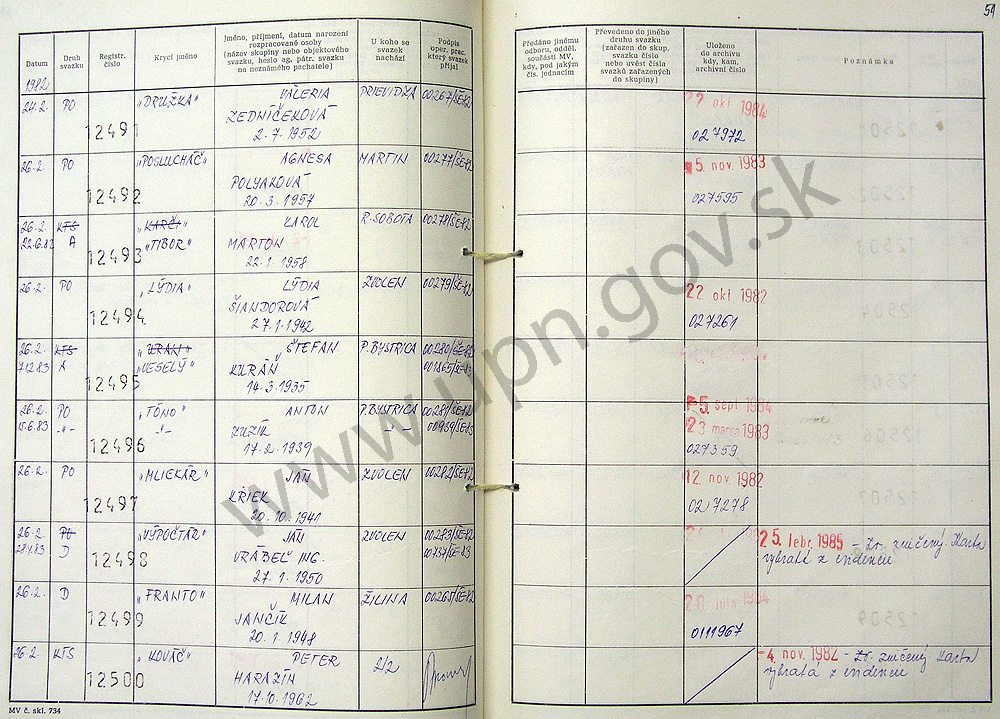 54
Datum
Druh svazku
Registr. číslo
Krycí jméno
Jméno, příjmení, datum narození
rozpracované osoby
(název skupiny nebo objektového
svazku, heslo ag. pátr. svazku
na neznámého pachatele)
U koho se
svazek
nachází
Podpis
oper. prac.
který svazek
přijal
Předáno jinému
odboru, odděl.
součásti MV,
kdy, pod jakým
čís. jednacím
Převedeno do jiného
druhu svazku
(zařazen do skup.
svazku číslo
nebo uvést čísla
svazků zařazených
do skupiny)
Uloženo
do archivu
kdy, kam,
archivní číslo
Poznámka
1982
24.2. PO 12491 „DRUŽKA" VALERIA PRIEVIDZA 00267/ŠE-82 27 okt 1984
ZEDNÍČEKOVÁ
2.7.1952 027972
26.2. PO 12492 „POSLUCHÁČ" AGNESA MARTIN 00277/ŠE-82 5. nov. 1983
POLYAKOVÁ
20.3.1957 027595
26.2. KTS 12493 „KARČI" KAROL R. SOBOTA 00278/ŠE-82
A „TIBOR" MARTON
22.1.1958
26.2. PO 12494 „LÝDIA" LÝDIA ZVOLEN 00279/ŠE-82 22 okt 1982
ŠIANDOROVÁ
27.1.1942 027261
26.2. KTS 12495 ŠTEFAN P. BYSTRICA 00280/ŠE-82
7.12.83 A „VESELÝ" KURÁŇ
14.3.1935
26.2. PO 12496 „TÓNO" ANTON P. BYSTRICA 00281/ŠE-82 5. sept 1984
-"- -"- ZUZIK -"- 23 marca 1983
17.2.1939 027359
26.2. PO 12497 „MLIEKÁR" JÁN ZVOLEN 00282/ŠE-82 12 nov. 1982
KŘIEK
20.10.1941 027278
26.2. PO 12498 „VÝPOČTÁR" JÁN ZVOLEN 00283/ŠE-82 25. febr 1985 - Zv. zničený. Karta
D VRÁBEĽ ING. vybratá z evidencie
27.1.1950
26.2. D 12499 „FRANTO" MILAN ŽILINA 00265/ŠE-82
JANČÍK
20.1.1948 0111967
26.2. KTS 12500 „KOVÁČ" PETER 2/2 -4. nov. 1982 - Zv. zničený. Karta
HARAZÍN vybratá z evidencie
17.10.1962
MV č. skl. 734
www.upn.gov.sk